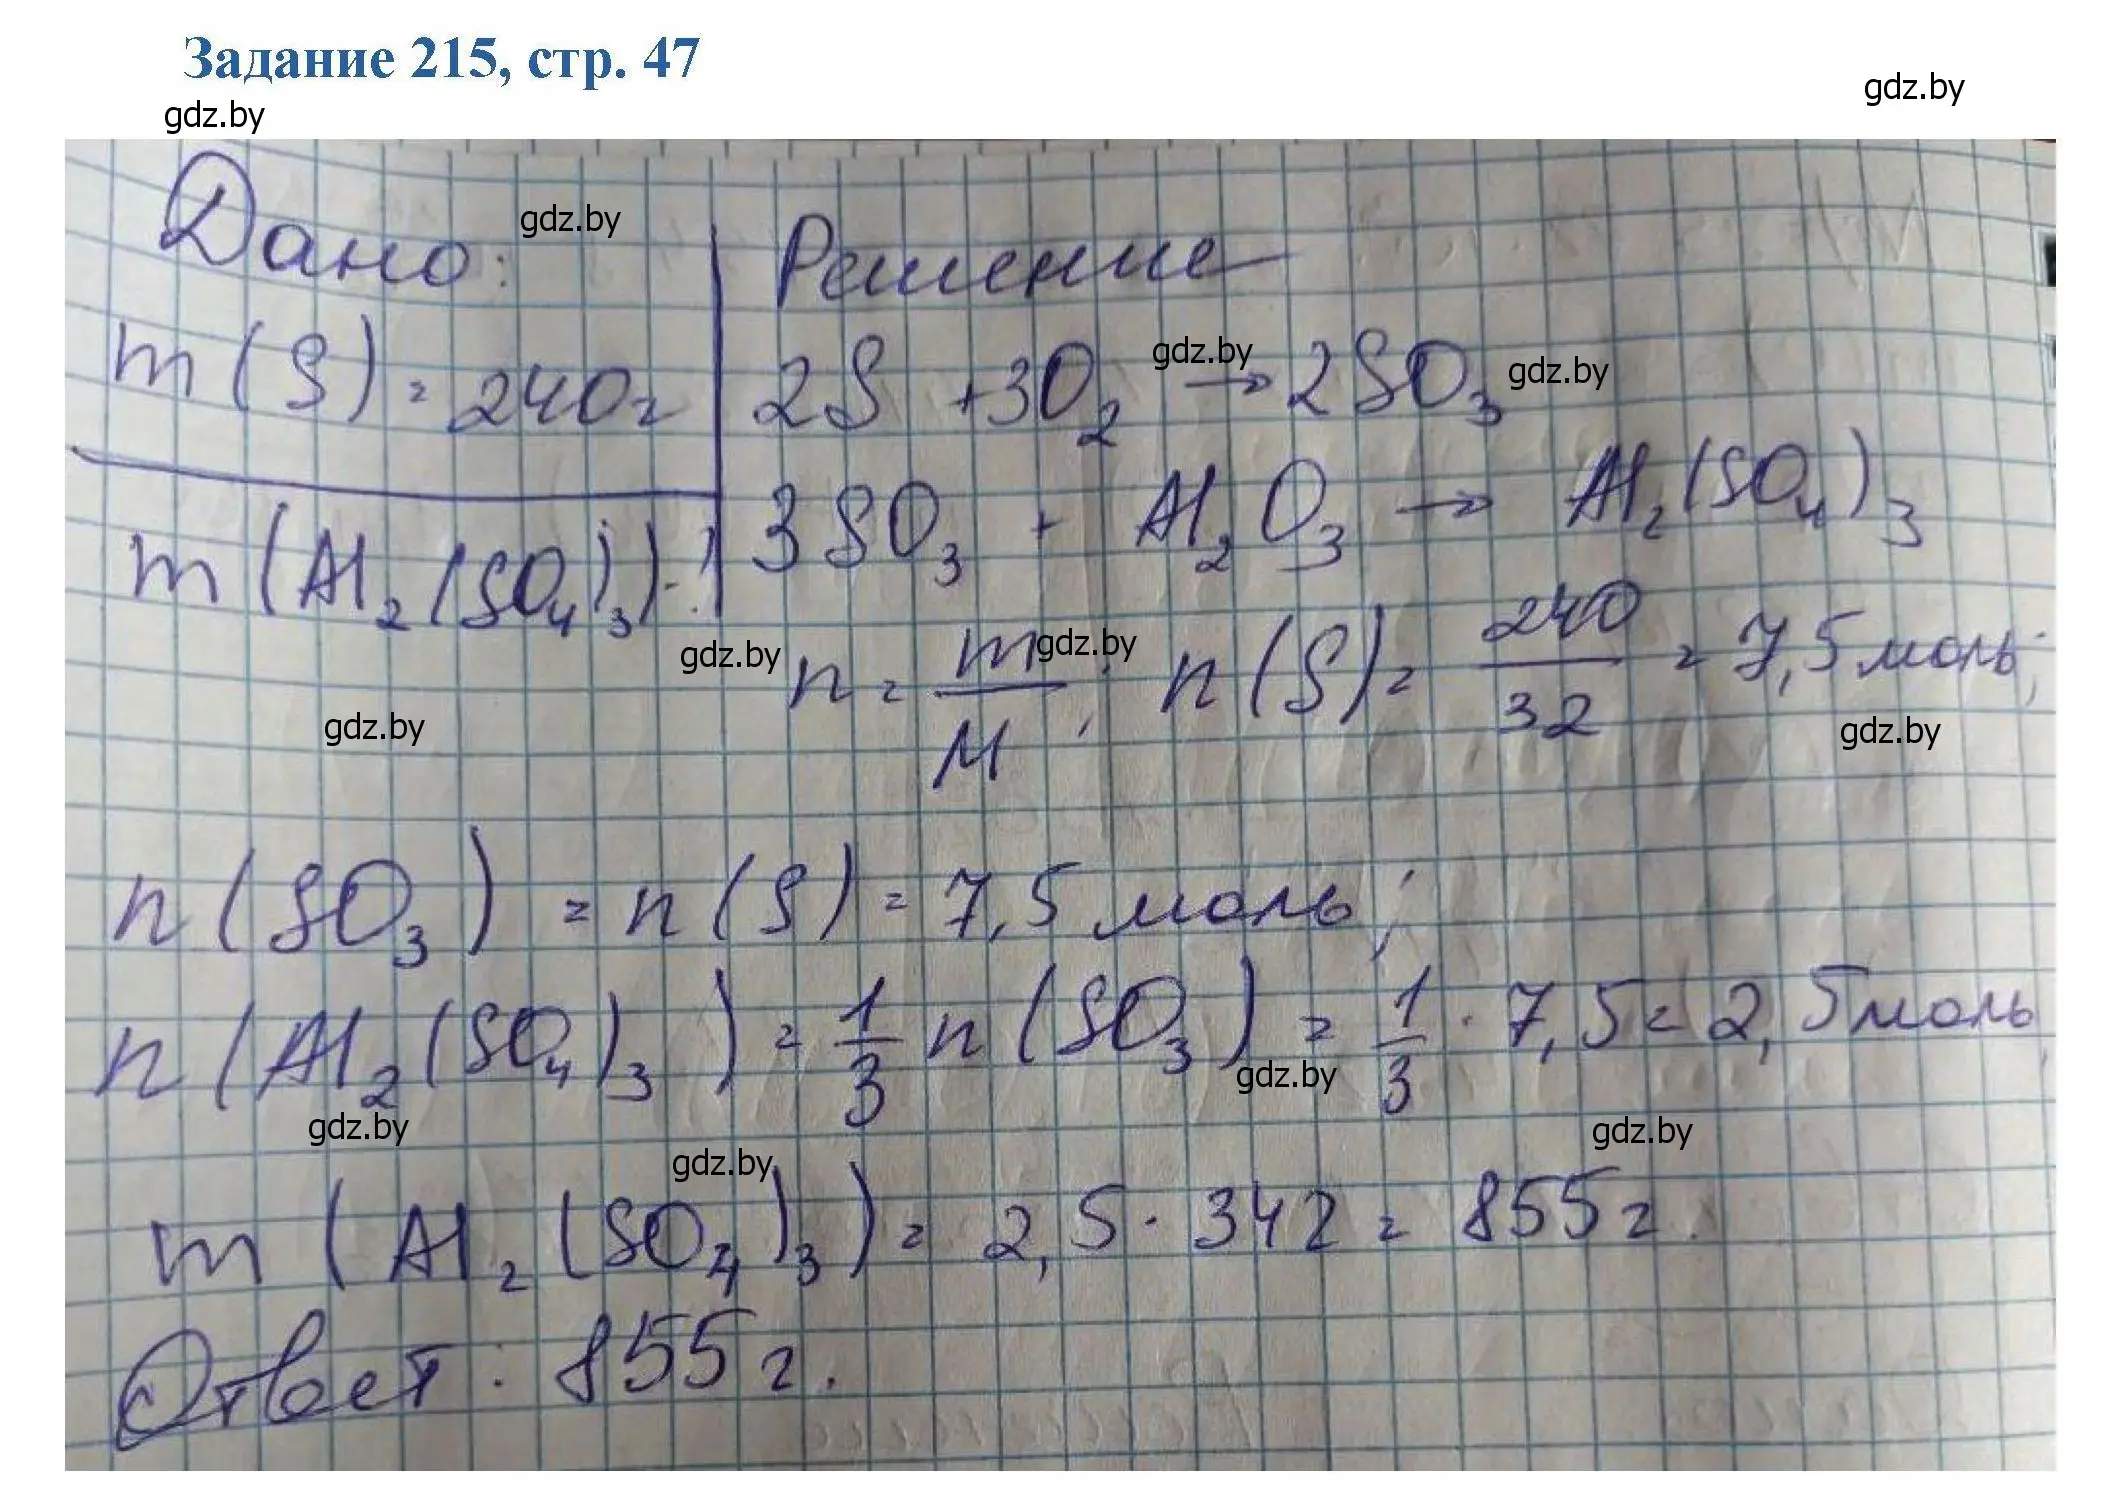 Задание 215, стр. 47
gdz.by
gdz.by
Дано:
gdz.by
Решение
m(S) = 240г
2S + 3O₂ → 2SO₃
gdz.by
gdz.by
m(Al₂(SO₄)₃)-?
3SO₃ + Al₂O₃ → Al₂(SO₄)₃
gdz.by
gdz.by
n = m/M; n(S) = 240/32 = 7,5 моль;
gdz.by
gdz.by
n(SO₃) = n(S) = 7,5 моль;
n(Al₂(SO₄)₃) = 1/3 n(SO₃) = 1/3 · 7,5 = 2,5 моль
gdz.by
gdz.by
gdz.by
gdz.by
m(Al₂(SO₄)₃) = 2,5 · 342 = 855г.
Ответ: 855г.